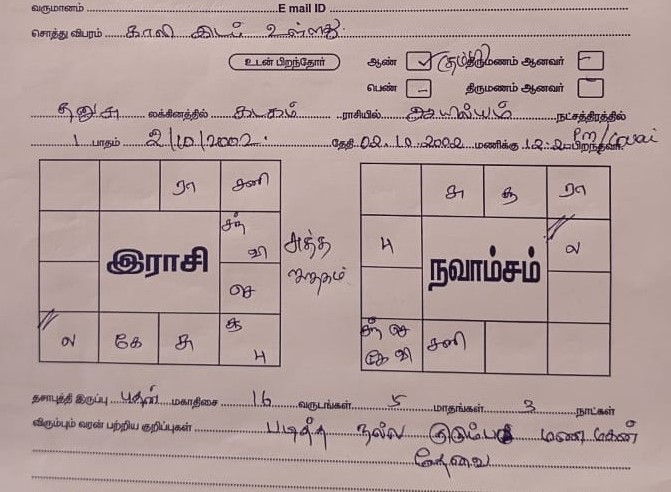 வருமானம் E mail ID
சொத்து விபரம் காலி இடம் உள்ளது
உடன் பிறந்தோர் ஆண் திருமணம் ஆனவர்
பெண் திருமணம் ஆனவர்
தனுசு லக்கினத்தில் கடகம் ராசியில் ஆயில்யம் நட்சத்திரத்தில்
1 பாதம் 2/10/2002 தேதி 02.10.2002 மணிக்கு பிறந்தவர்
ரா சனி
சந் வி
செ
ல கே சு சூ பு
இராசி
சு சூ ரா
பு ல
சந் செ கே வி சனி
நவாம்சம்
தசாபுத்தி இருப்பு புதன் மகாதிசை 16 வருடங்கள் 5 மாதங்கள் 3 நாட்கள்
விரும்பும் வரன் பற்றிய குறிப்புகள் படித்த நல்ல குடும்ப மண மகன்
தேவை